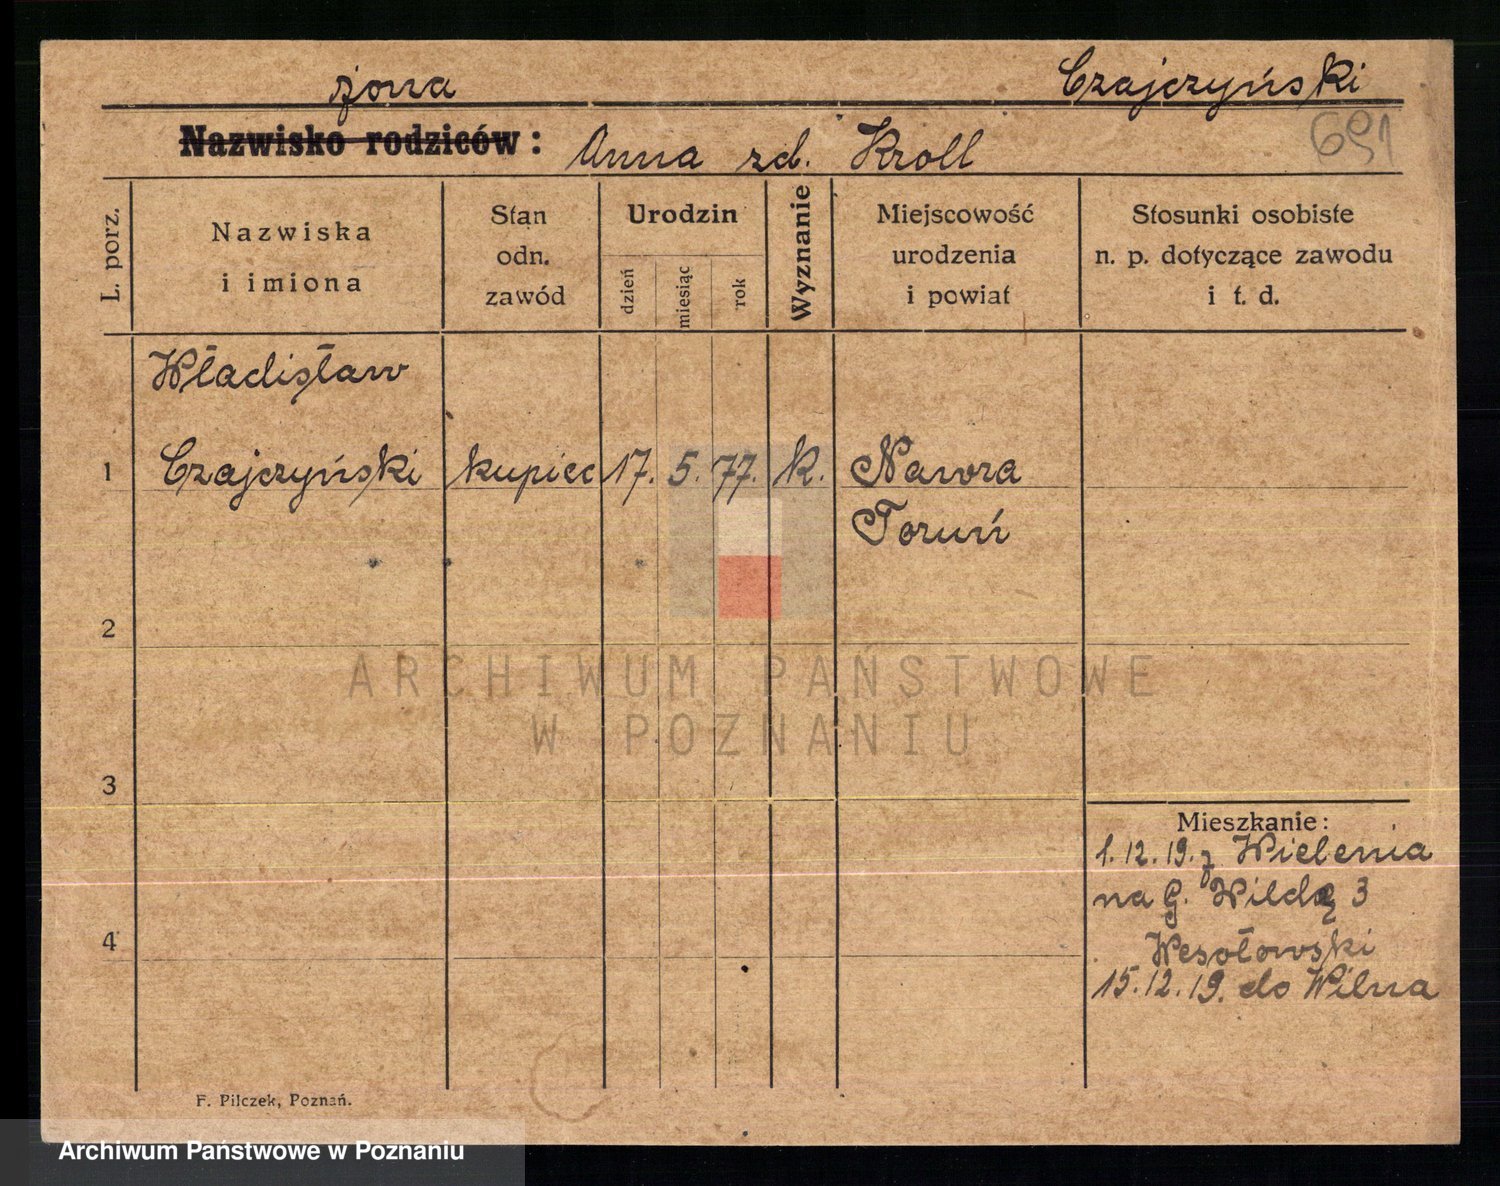 żona
Czajczyński
691
Nazwisko rodziców: Anna zd. Kroll
L. porz.
Nazwiska
i imiona
Stan
odn.
zawód
Urodzin
dzień
miesiąc
rok
Wyznanie
Miejscowość
urodzenia
i powiat
Stosunki osobiste
n. p. dotyczące zawodu
i t. d.
Władisław
1 Czajczyński kupiec 17. 5. 77. k. Nawra
Toruń
2
ARCHIWUM PAŃSTWOWE
W POZNANIU
3
Mieszkanie:
1.12.19. z Wielenia
na G. Wildę 3
4
Wesołowski
15.12.19. do Wilna
F. Pilczek, Poznań.
Archiwum Państwowe w Poznaniu